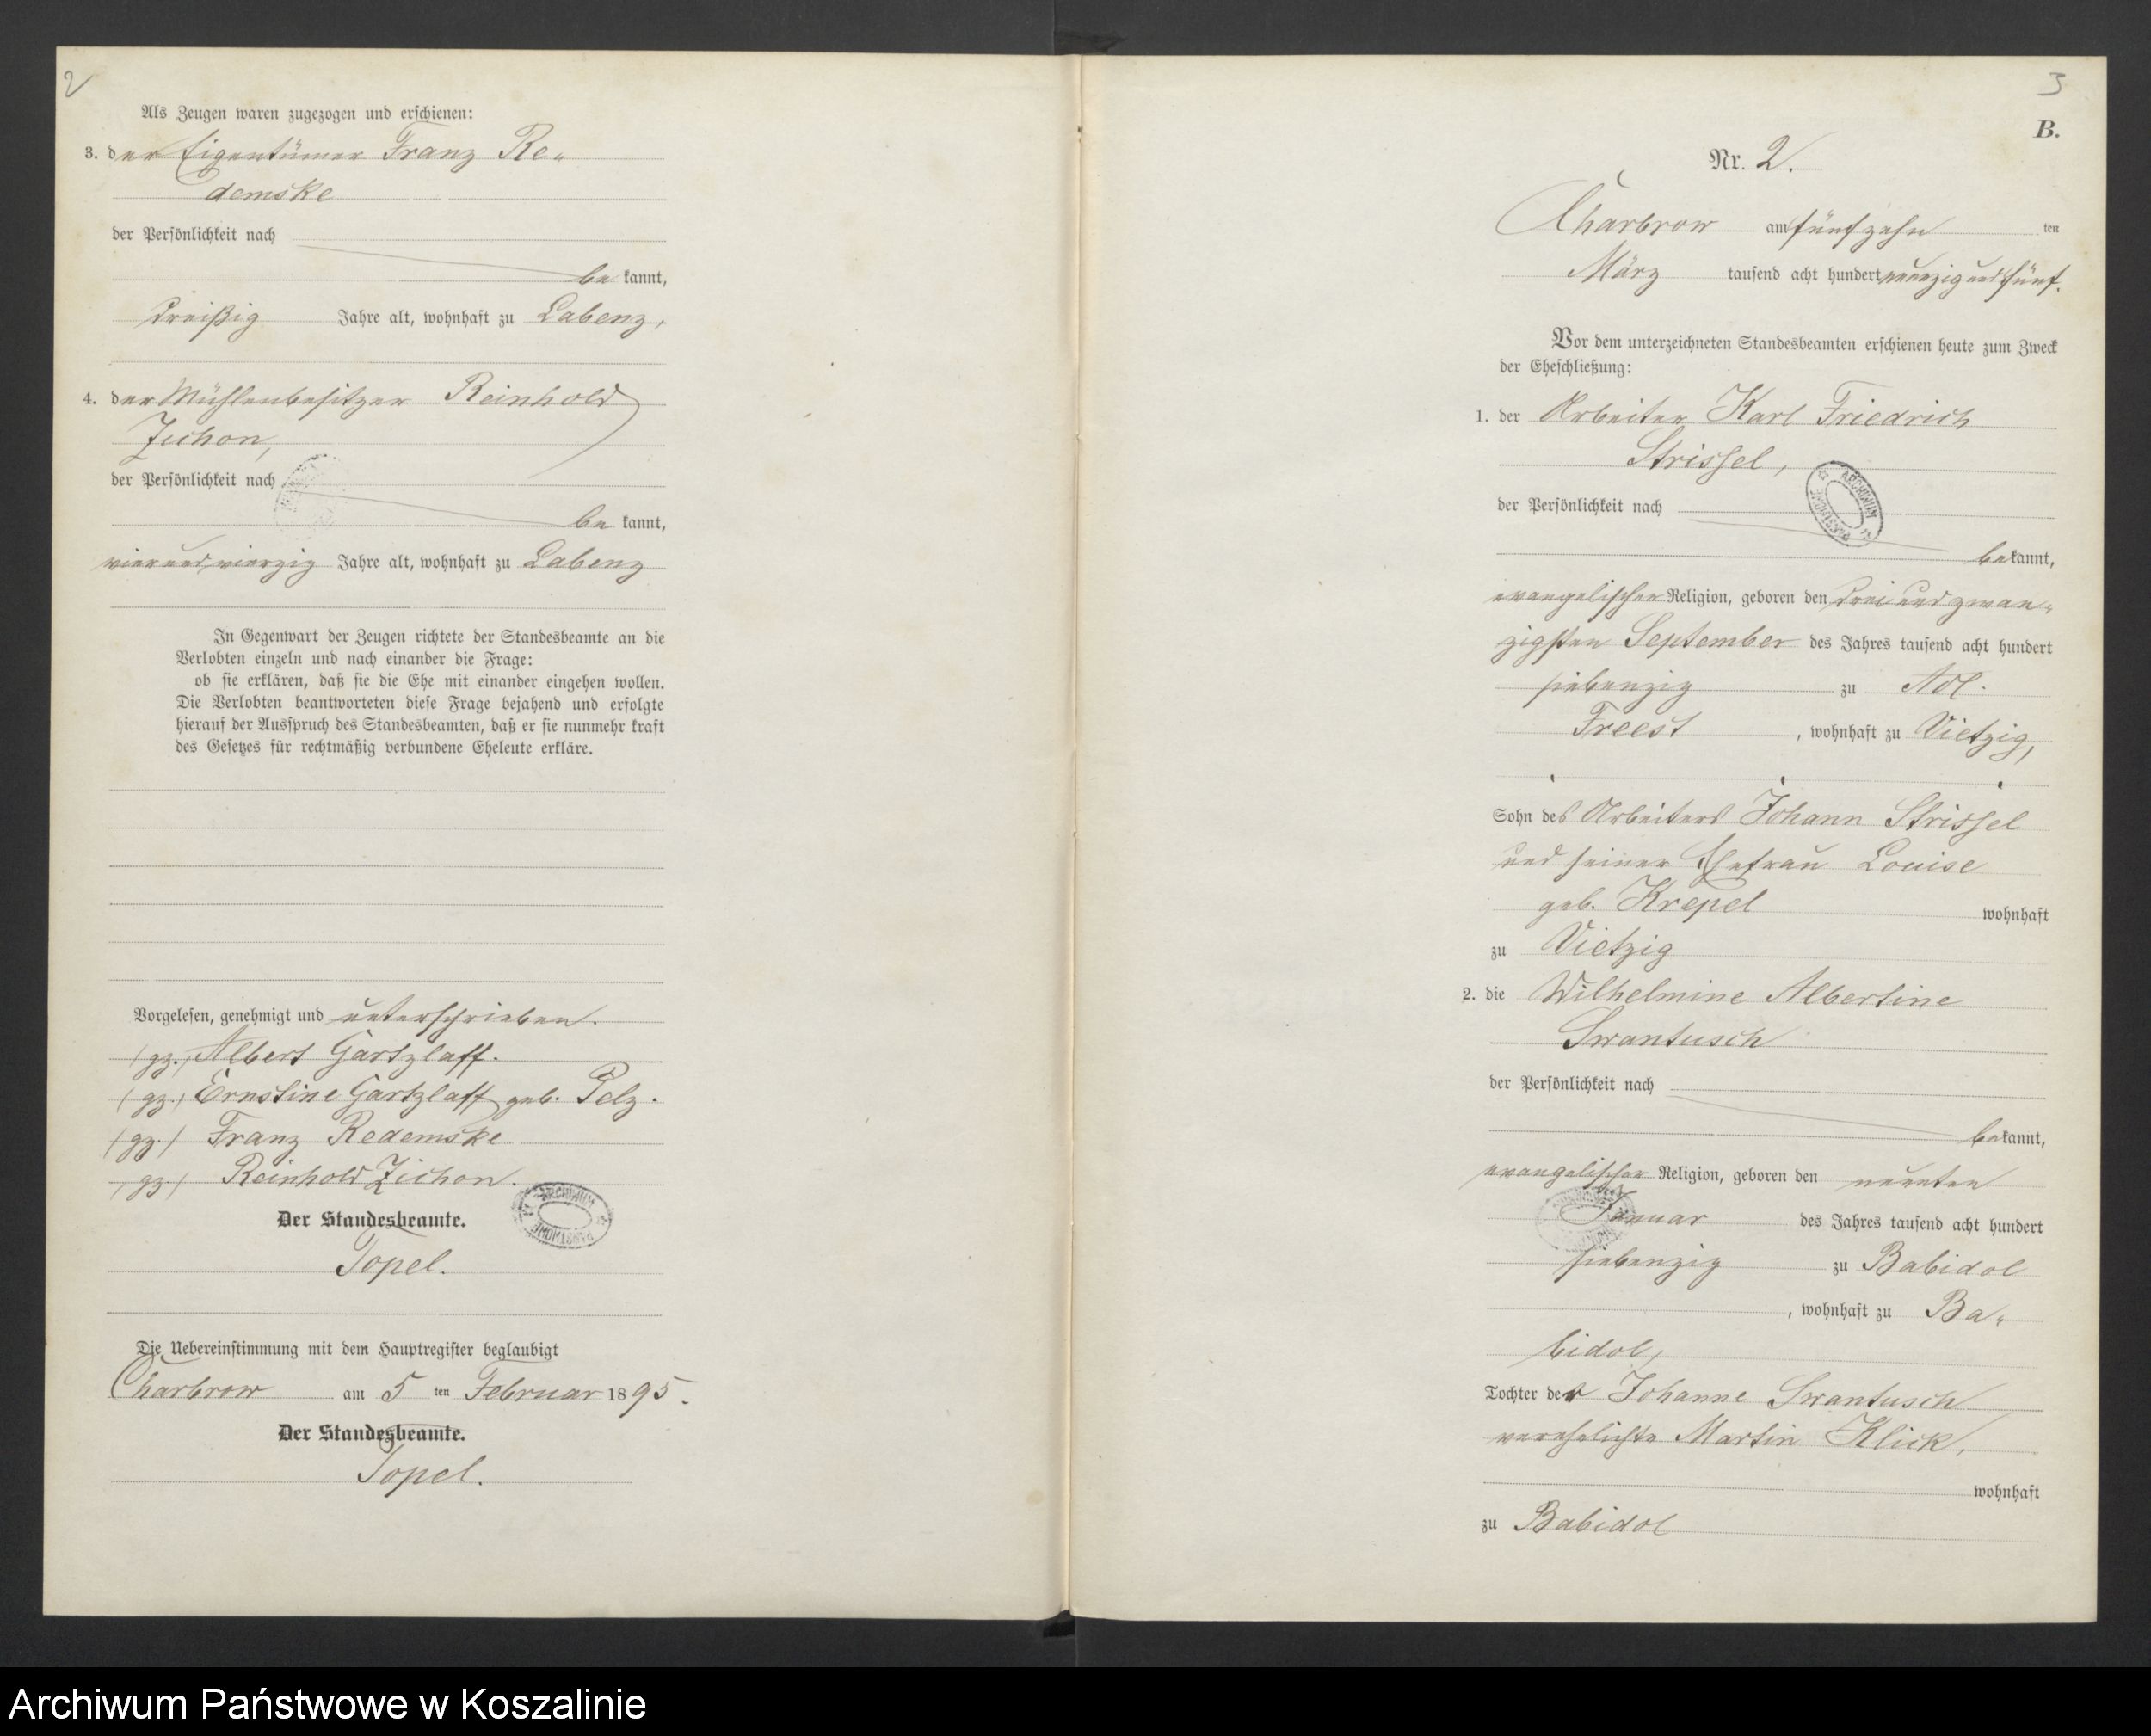 2
Als Zeugen waren zugezogen und erschienen:
3. der Eigentümer Franz Re„
demske
der Persönlichkeit nach
be kannt,
dreißig Jahre alt, wohnhaft zu Labenz,
4. der Mühlenbesitzer Reinhold
Zichon,
der Persönlichkeit nach
be kannt,
vierundvierzig Jahre alt, wohnhaft zu Labenz
In Gegenwart der Zeugen richtete der Standesbeamte an die
Verlobten einzeln und nach einander die Frage:
ob sie erklären, daß sie die Ehe mit einander eingehen wollen.
Die Verlobten beantworteten diese Frage bejahend und erfolgte
hierauf der Ausspruch des Standesbeamten, daß er sie nunmehr kraft
des Gesetzes für rechtmäßig verbundene Eheleute erkläre.
Vorgelesen, genehmigt und unterschrieben.
(gz.) Albert Gartzlaff.
(gz.) Ernstine Gartzlaff geb. Pelz.
(gz.) Franz Redemske
(gz.) Reinhold Zichon.
Der Standesbeamte.
Topel.
Die Uebereinstimmung mit dem Hauptregister beglaubigt
Charbrow am 5 ten Februar 1895.
Der Standesbeamte.
Topel.
3
B.
Nr. 2.
Charbrow am fünfzehn ten
März tausend acht hundert neunzig und fünf.
Vor dem unterzeichneten Standesbeamten erschienen heute zum Zweck
der Eheschließung:
1. der Arbeiter Karl Friedrich
Strissel,
ARCHIWUM PAŃSTWOWE
der Persönlichkeit nach
bekannt,
evangelischer Religion, geboren den drei und zwan„
zigsten September des Jahres tausend acht hundert
siebenzig zu Adl.
Freest, wohnhaft zu Vietzig,
Sohn des Arbeiters Johann Strissel
und seiner Ehefrau Louise
geb. Krepel wohnhaft
zu Vietzig
2. die Wilhelmine Albertine
Swantusch
der Persönlichkeit nach
bekannt,
evangelischer Religion, geboren den neunten
Januar des Jahres tausend acht hundert
siebenzig zu Babidol
, wohnhaft zu Ba„
bidol,
Tochter der Johanne Swantusch
verehelichte Martin Klick,
wohnhaft
zu Babidol
Archiwum Państwowe w Koszalinie